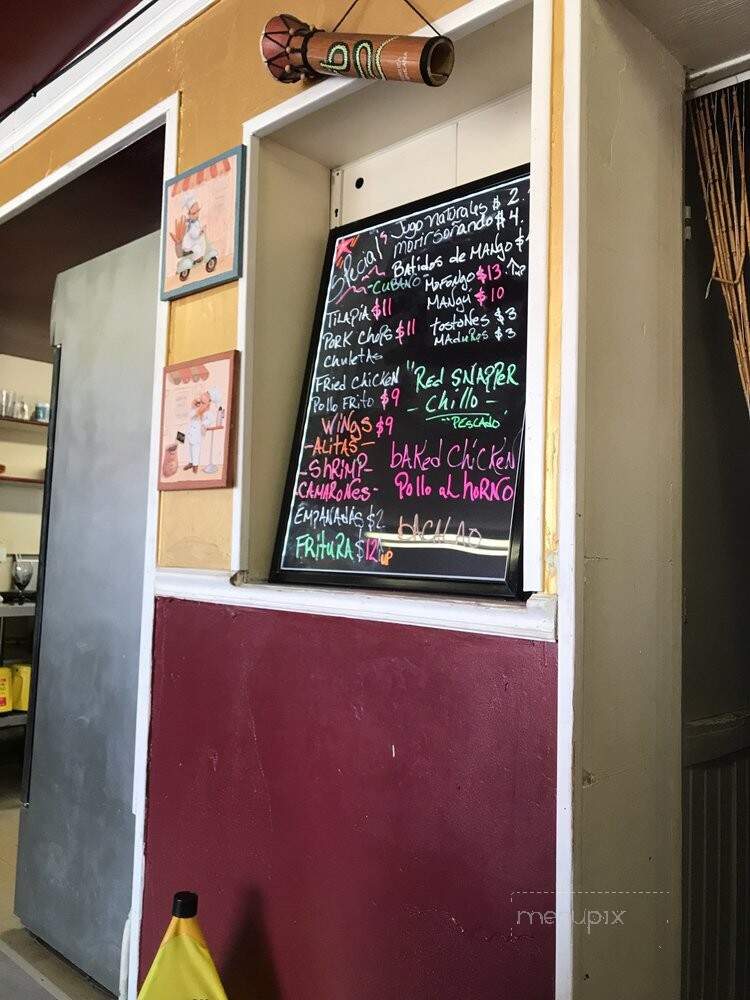 Special's
Jugo naturales $ 2.
morir soñando $ 4.
Batidos de MANGO $
-CUBANO
MoFongo $13 up
MANGU $10
tostones $3
MADUROS $3
TILAPIA $11
PORK Chops $11
Chuletas
Fried Chicken
Pollo Frito $9
WINgS $9
-ALITAS-
-ShRIMP-
-CAMARONES-
EMPANADAS $2
FRituRA $12 up
"Red SNAPPER
- Chillo -
"PESCADO"
bAKed ChiCKEN
Pollo al hORNO
bACALAO
menupix